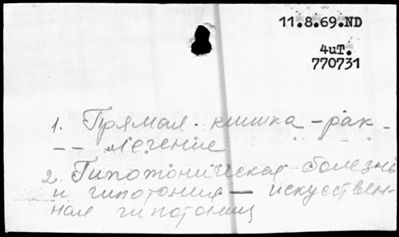 11.8.69.ND
4иТ.
770731
1. Прямая кишка - рак -
-- лечение
2. Гипотоническая болезнь
и гипотония - искуствен-
ная гипотония